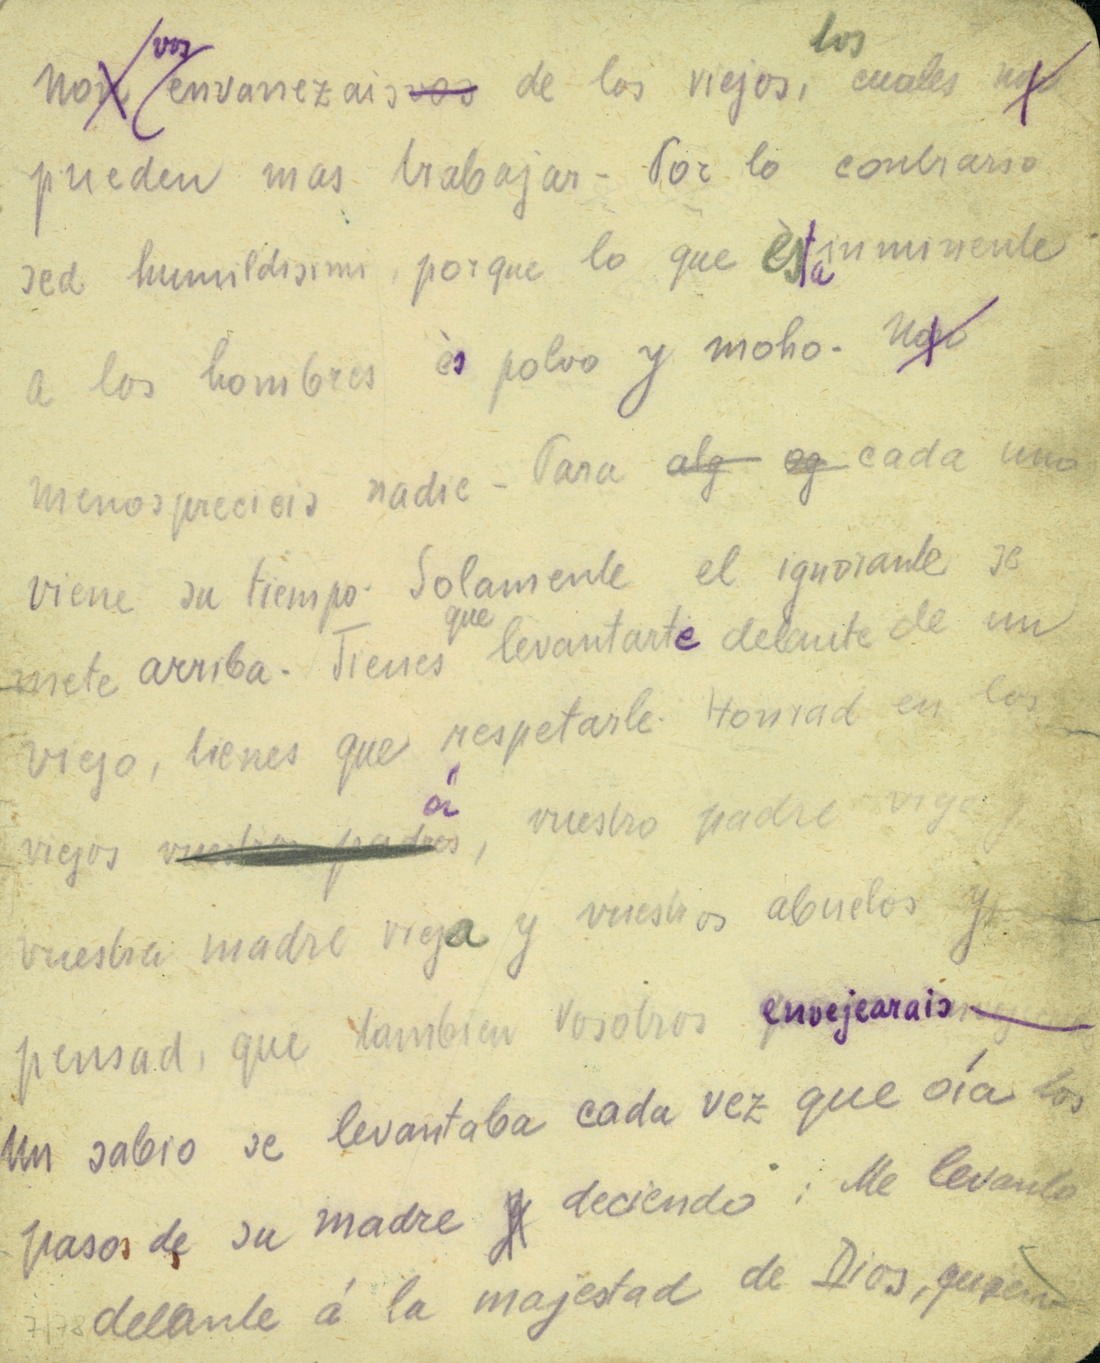 vos los
No envanezcais vos de los viejos, cuales no
pueden mas trabajar - Por lo contrario
sed humildisimi, porque lo que está inminente
a los hombres es polvo y moho. No
menosprecieis nadie - Para alg og cada uno
viene su tiempo. Solamente el ignorante se
que
mete arriba. Tienes levantarte delante de un
viejo, tienes que respetarle. Honrad en los
á
viejos vuestros padres, vuestro padre viejo y
vuestra madre vieja y vuestros abuelos y
pensad, que tambien vosotros envejearais
Un sabio se levantaba cada vez que oía los
pasos de su madre y deciendo: Me levanto
delante á la majestad de Dios,
7/78